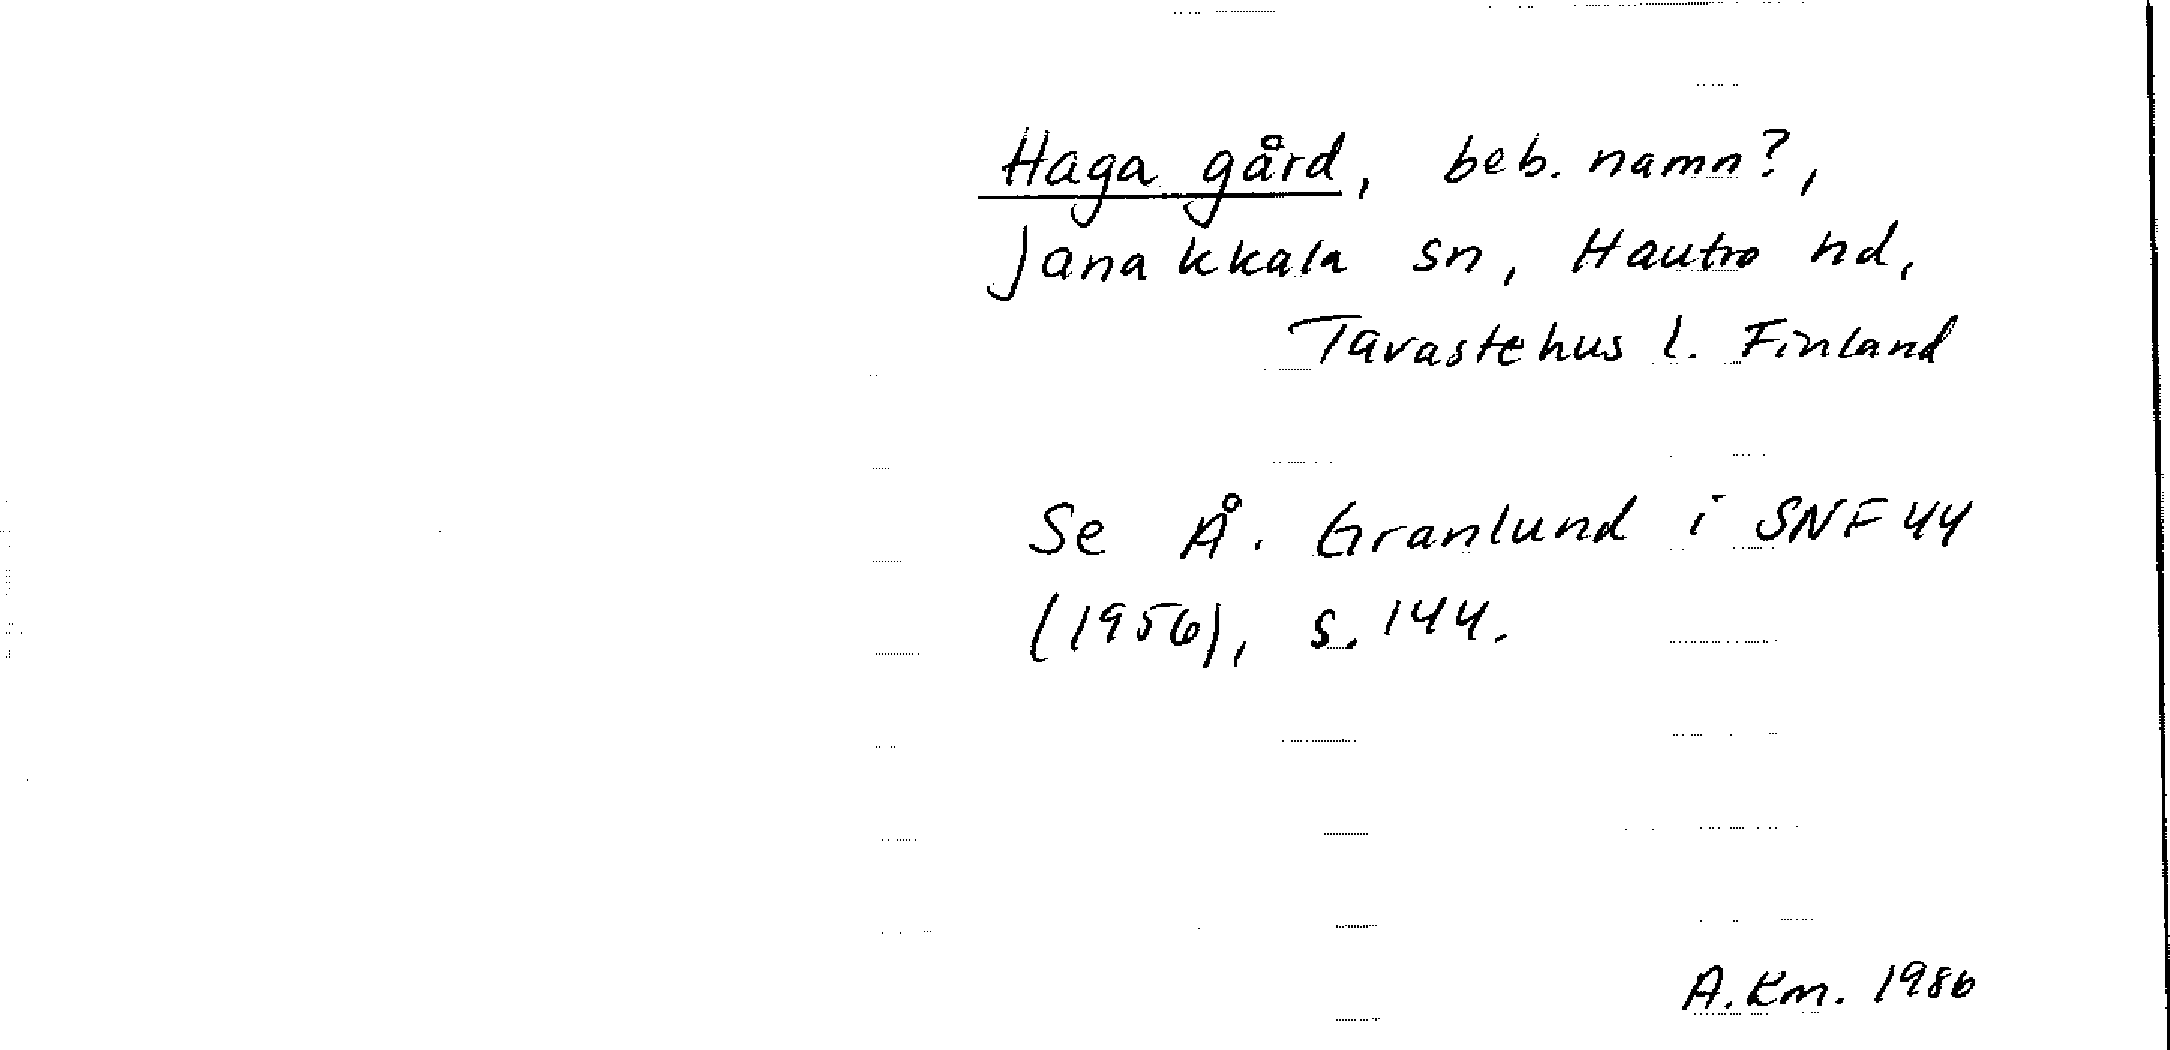 Haga gård, beb. namn?,
Janakkala sn, Hautro hd,
Tavastehus l. Finland
Se Å. Granlund i SNF 44
(1956), s. 144.
A. Km. 1986